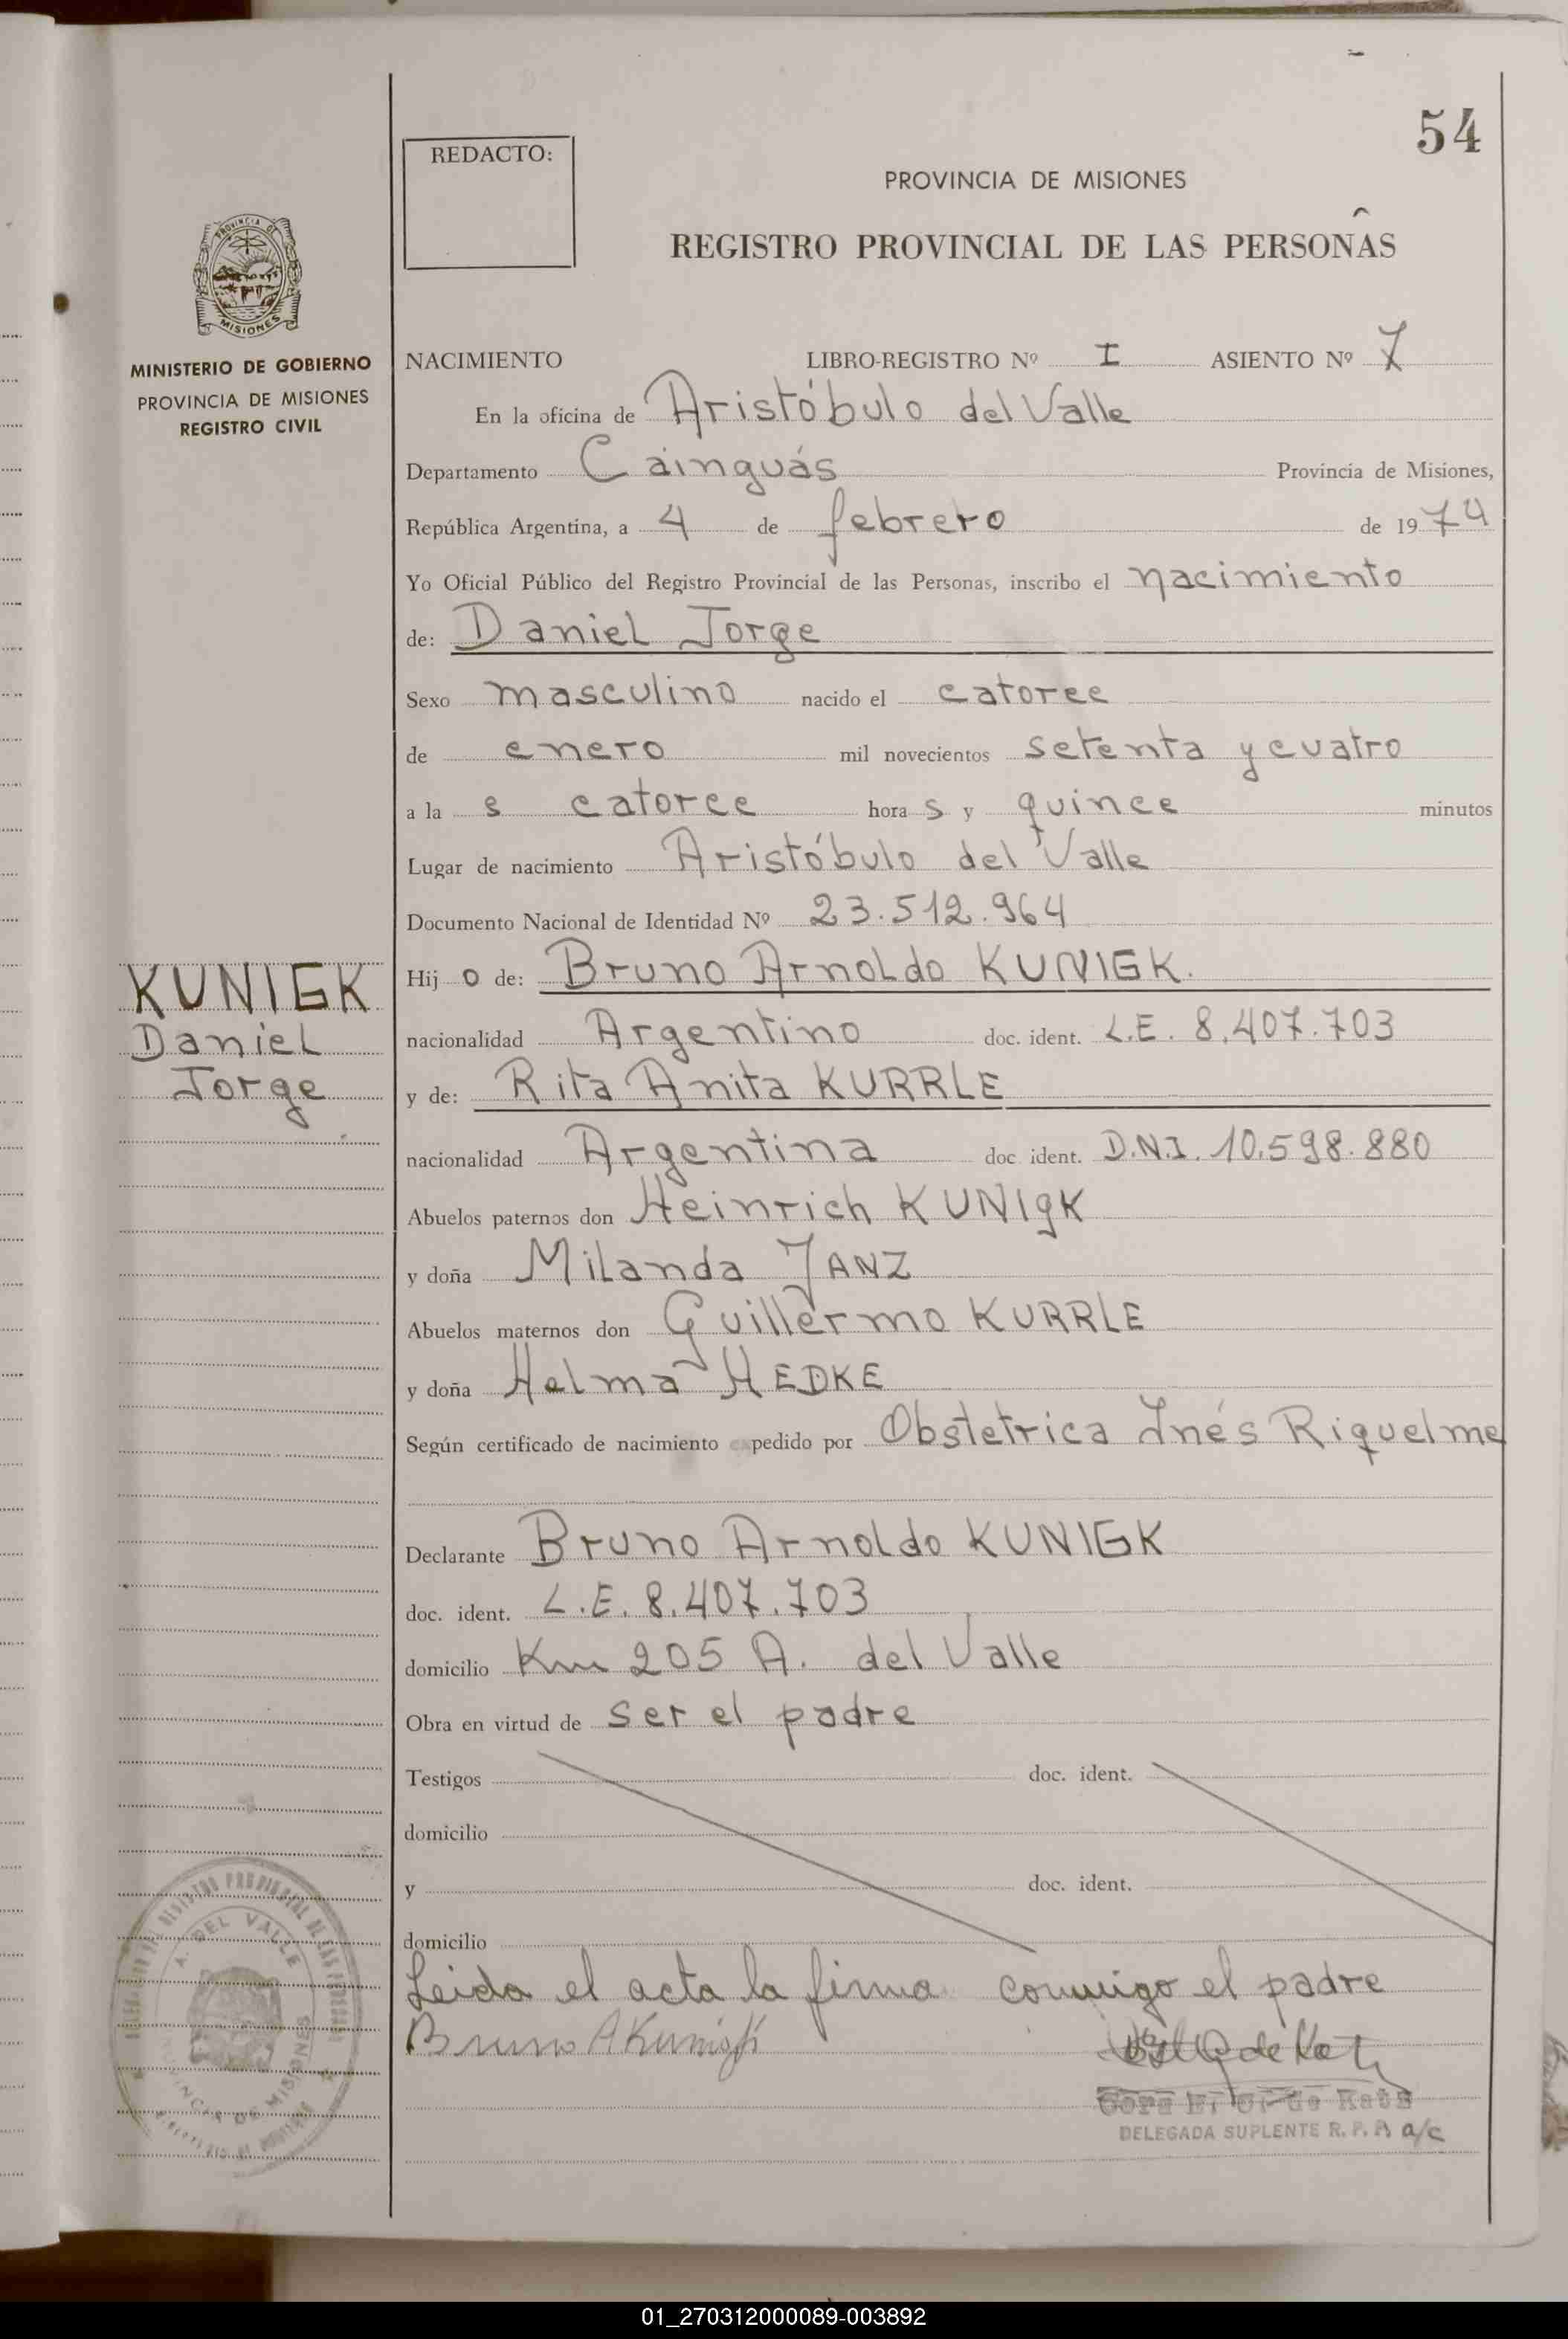 54
REDACTO:
PROVINCIA DE MISIONES
REGISTRO PROVINCIAL DE LAS PERSONAS
PROVINCIA DE
MISIONES
MINISTERIO DE GOBIERNO
PROVINCIA DE MISIONES
REGISTRO CIVIL
NACIMIENTO LIBRO-REGISTRO Nº I ASIENTO Nº 7
En la oficina de Aristóbulo del Valle
Departamento Cainguás Provincia de Misiones,
República Argentina, a 4 de febrero de 1974
Yo Oficial Público del Registro Provincial de las Personas, inscribo el nacimiento
de: Daniel Jorge
Sexo masculino nacido el catorce
de enero mil novecientos setenta y cuatro
a la s catorce hora s y quince minutos
Lugar de nacimiento Aristóbulo del Valle
Documento Nacional de Identidad Nº 23.512.964
KUNIGK
Daniel
Jorge
Hij o de: Bruno Arnoldo KUNIGK.
nacionalidad Argentino doc. ident. L.E. 8.407.703
y de: Rita Anita KURRLE
nacionalidad Argentina doc. ident. D.N.I. 10.598.880
Abuelos paternos don Heinrich KUNIgK
y doña Milanda JANZ
Abuelos maternos don Guillermo KURRLE
y doña Helma HEDKE
Según certificado de nacimiento expedido por Obstetrica Inés Riquelme
Declarante Bruno Arnoldo KUNIGK
doc. ident. L.E. 8.407.703
domicilio Km 205 A. del Valle
Obra en virtud de ser el padre
Testigos doc. ident.
domicilio
y doc. ident.
domicilio
Leida el acta la firma conmigo el padre
Bruno A Kunigk
DELEGADA SUPLENTE R. P. P. a/c
A. DEL VALLE
PROVINCIA DE MISIONES
01_270312000089-003892